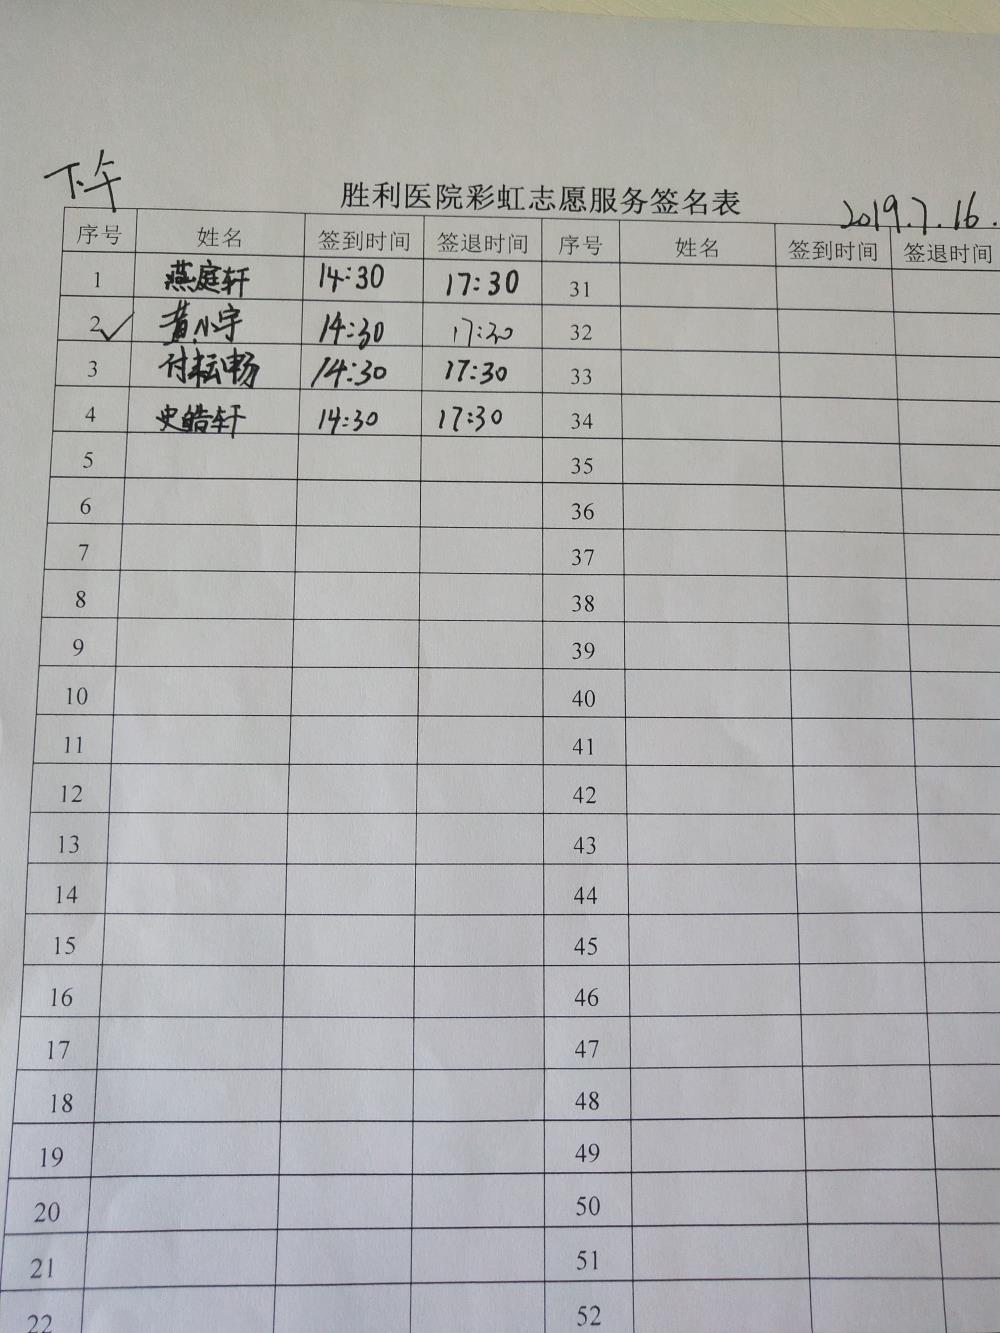 下午
胜利医院彩虹志愿服务签名表
2019.7.16.
序号 姓名 签到时间 签退时间 序号 姓名 签到时间 签退时间
1 燕庭轩 14:30 17:30 31
2 黄小宇 14:30 17:30 32
3 付耘畅 14:30 17:30 33
4 史皓轩 14:30 17:30 34
5 35
6 36
7 37
8 38
9 39
10 40
11 41
12 42
13 43
14 44
15 45
16 46
17 47
18 48
19 49
20 50
21 51
22 52